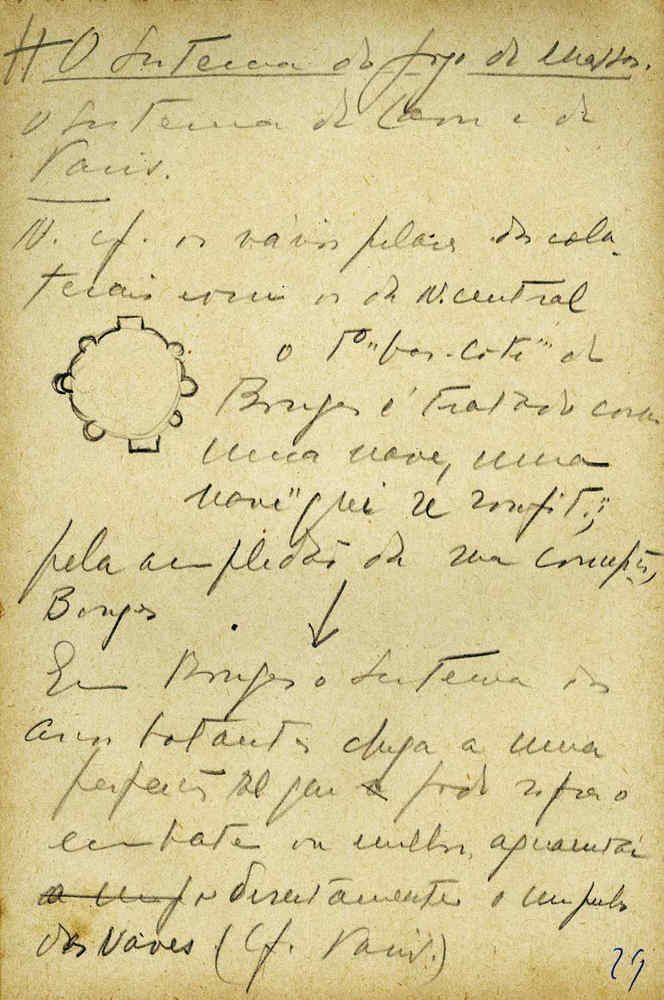 # O sistema do jogo de massas.
O sistema de Caen e de
Paris.
N. cf. os vários pilares das cola-
terais com os da N. central
o 1º "bas-coté" de
Bourges é tratado como
uma nave, uma
nave
pela amplidão da sua
Bourges
Em Bourges o sistema dos
arcos botantes chega a uma
perfeição tal que pode sofrer o
embate ou melhor, aguentar
directamente o impulso
das Naves (Cf. Paris.)
29